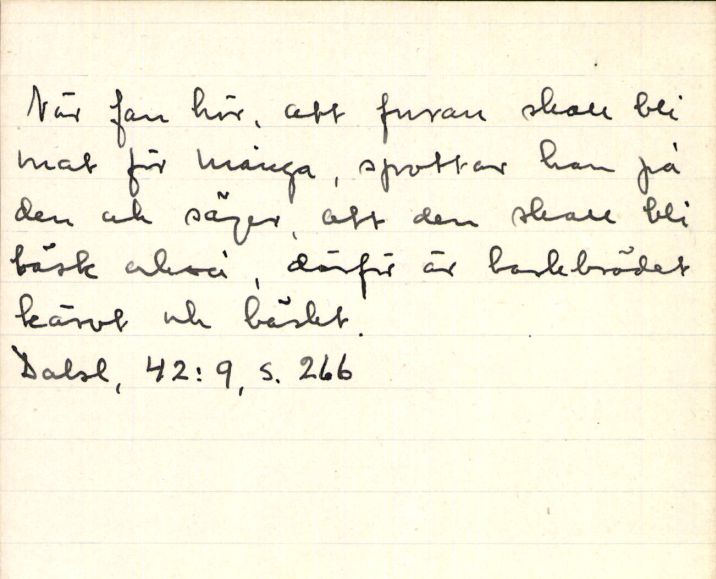 När fan hör, att furan skall bli
mat för många, spottar han på
den och säger, att den skall bli
bäsk också, därför är barkbrödet
kärvt och bäskt.
Dalsl, 42:9, s. 266